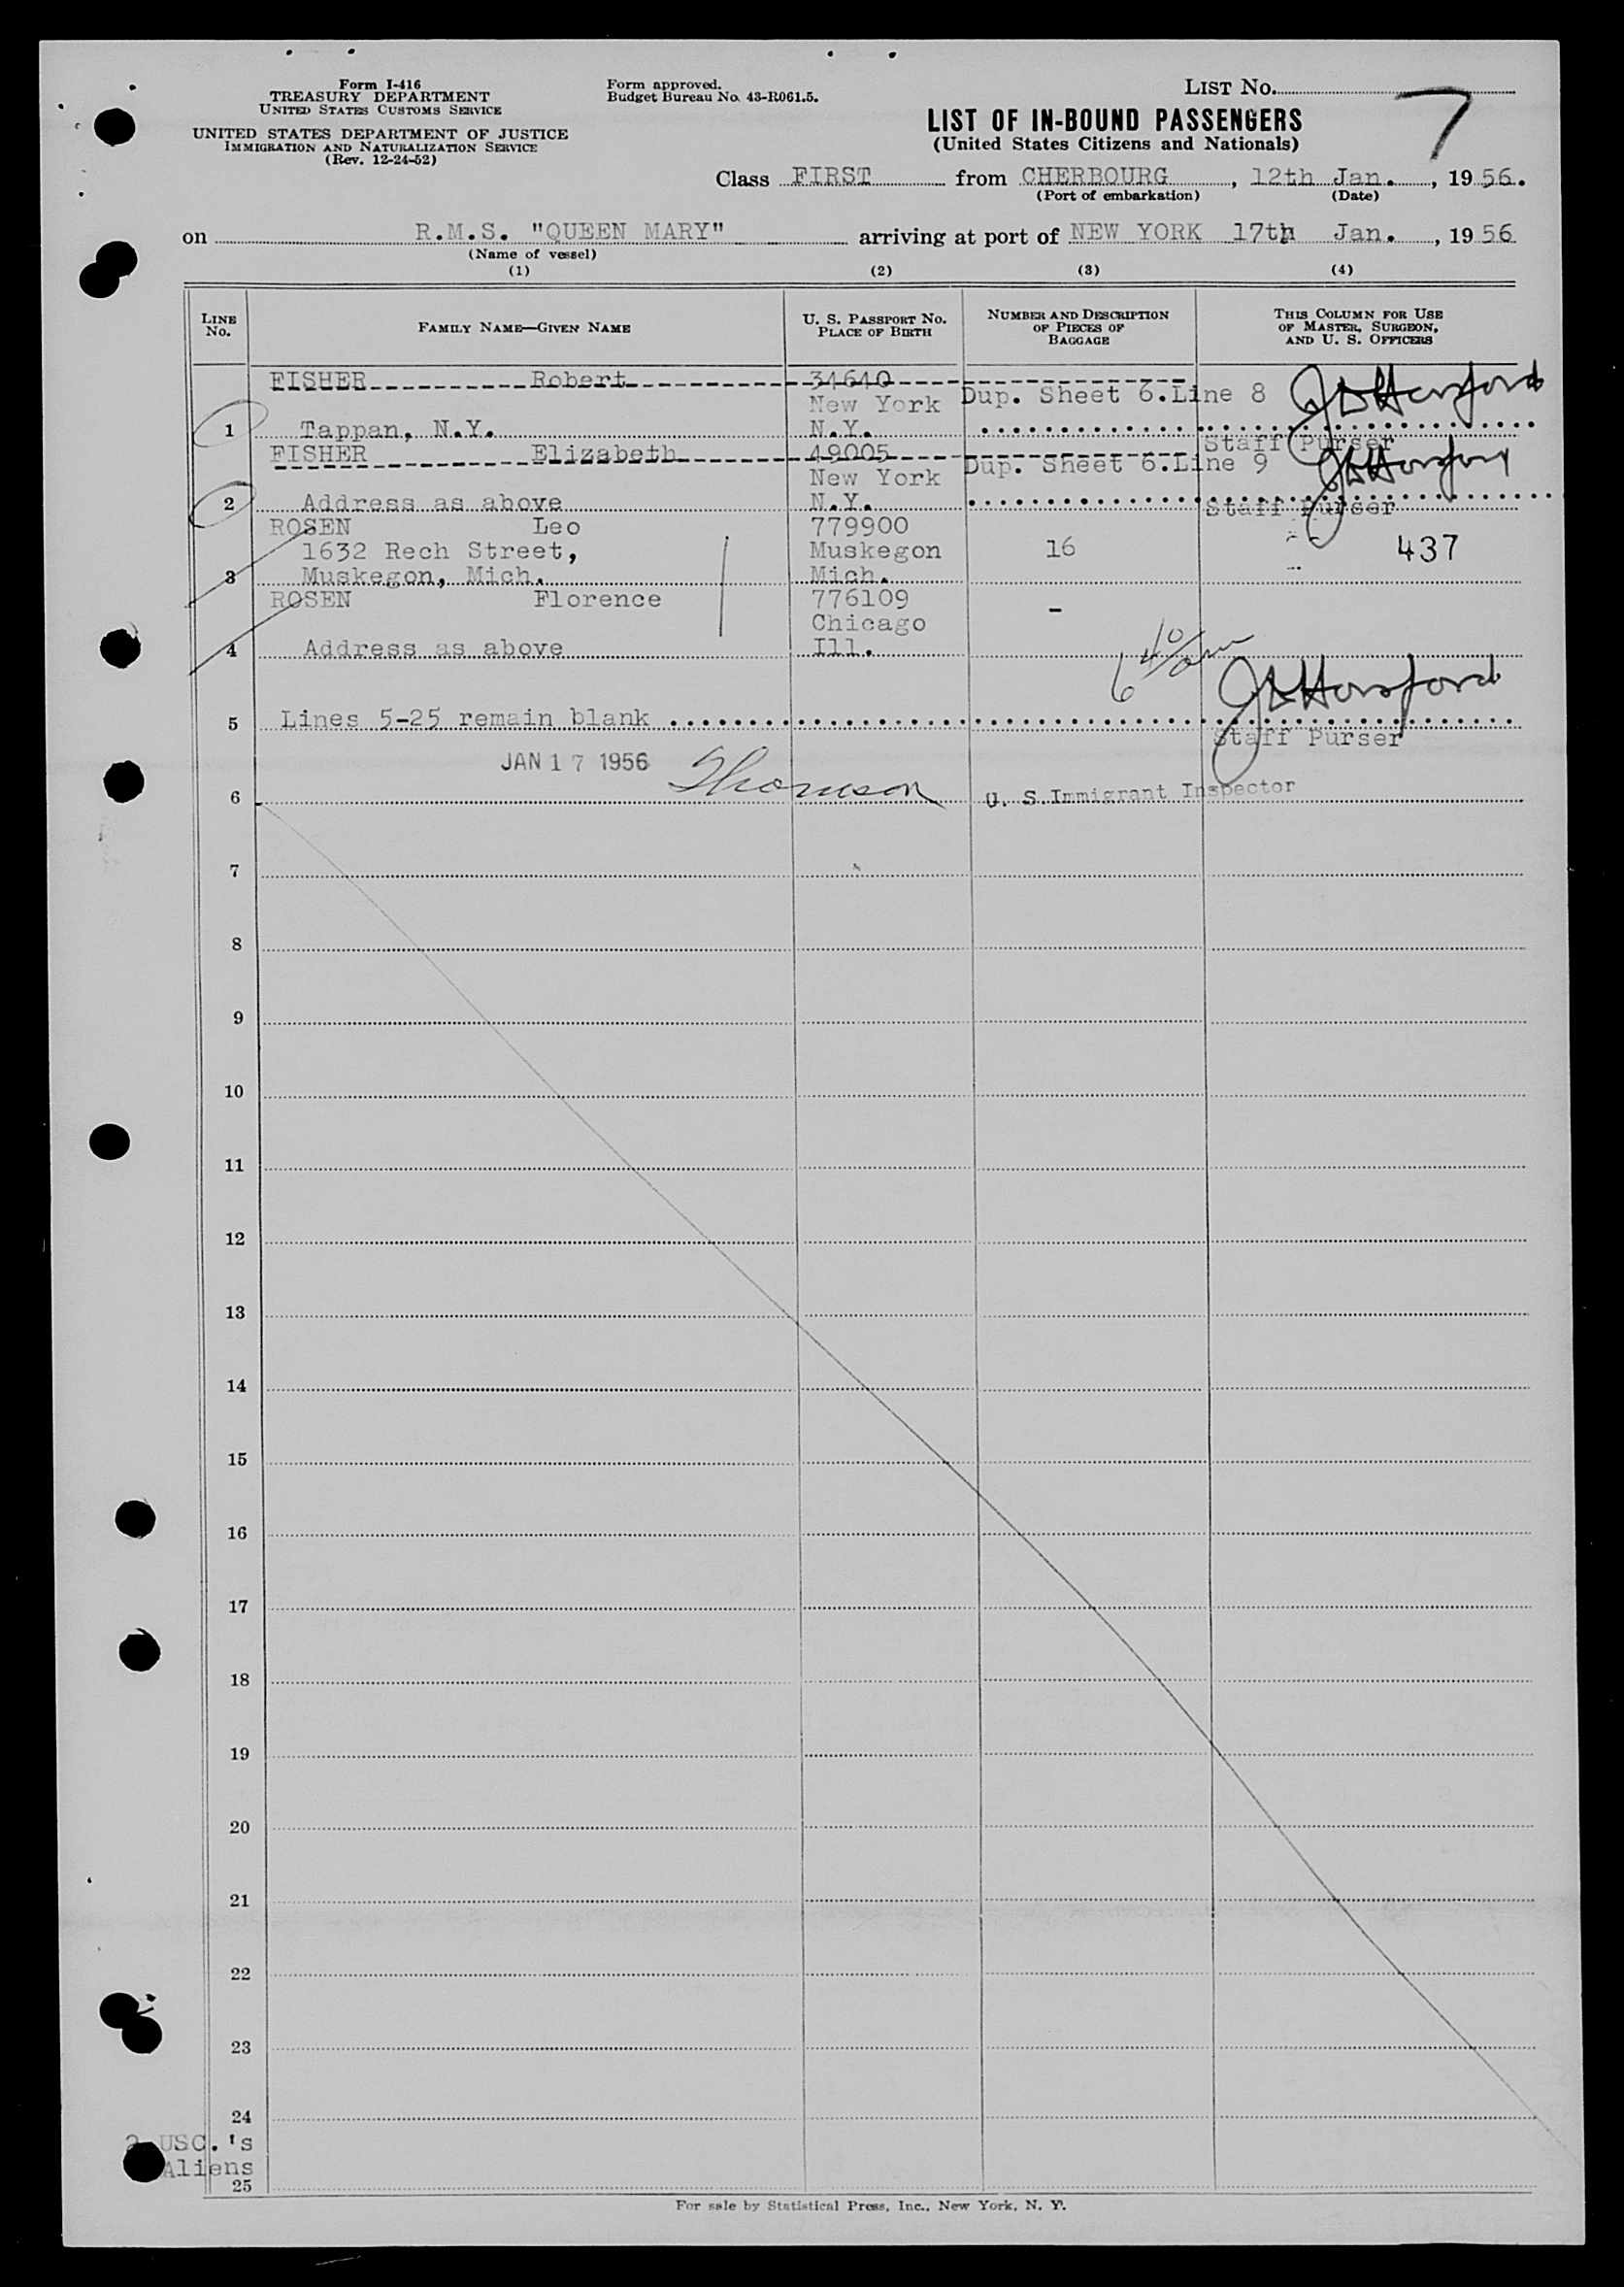 Form I-416
TREASURY DEPARTMENT
UNITED STATES CUSTOMS SERVICE
UNITED STATES DEPARTMENT OF JUSTICE
IMMIGRATION AND NATURALIZATION SERVICE
(Rev. 12-24-52)
Form approved.
Budget Bureau No. 43-R061.5.
LIST No. 7
LIST OF IN-BOUND PASSENGERS
(United States Citizens and Nationals)
Class FIRST from CHERBOURG, 12th Jan., 1956.
(Port of embarkation) (Date)
on R.M.S. "QUEEN MARY" arriving at port of NEW YORK 17th Jan., 1956
(Name of vessel)
(1) (2) (3) (4)
LINE No. FAMILY NAME—GIVEN NAME U. S. PASSPORT No. PLACE OF BIRTH NUMBER AND DESCRIPTION OF PIECES OF BAGGAGE THIS COLUMN FOR USE OF MASTER, SURGEON, AND U. S. OFFICERS
FISHER Robert 34640
New York Dup. Sheet 6.Line 8
1 Tappan, N.Y. N.Y.
Staff Purser
FISHER Elizabeth 49005
New York Dup. Sheet 6.Line 9
2 Address as above N.Y. Staff Purser
ROSEN Leo 779900
1632 Rech Street, Muskegon 16 437
3 Muskegon, Mich. Mich.
ROSEN Florence 776109
Chicago -
4 Address as above Ill.
6 40/am
JDHorsford
5 Lines 5-25 remain blank
Staff Purser
JAN 17 1956 Thomson
6 U. S. Immigrant Inspector
7
8
9
10
11
12
13
14
15
16
17
18
19
20
21
22
23
24
USC.'s
Aliens
25
For sale by Statistical Press, Inc., New York, N. Y.